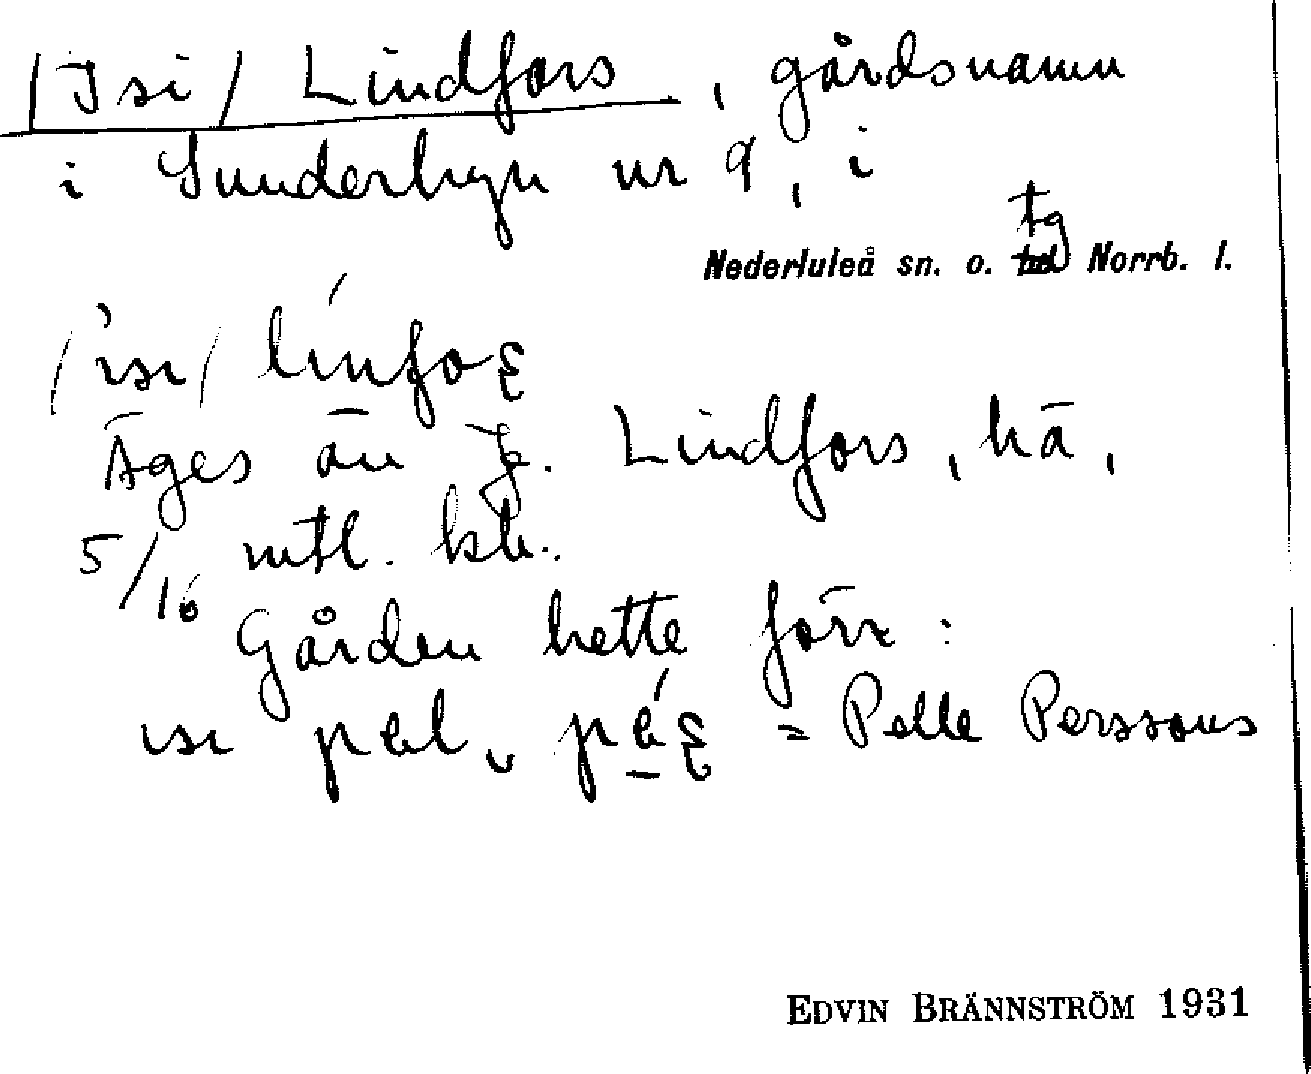 /Isi/ Lindfors, gårdsnamn
i Sunderbyn nr 9, i
tg
Nederluleå sn. o. Norrb. l.
Äges än J. Lindfors, hä,
5/16 mtl. kr.
Gården hette förr:
= Pelle Perssons
EDVIN BRÄNNSTRÖM 1931